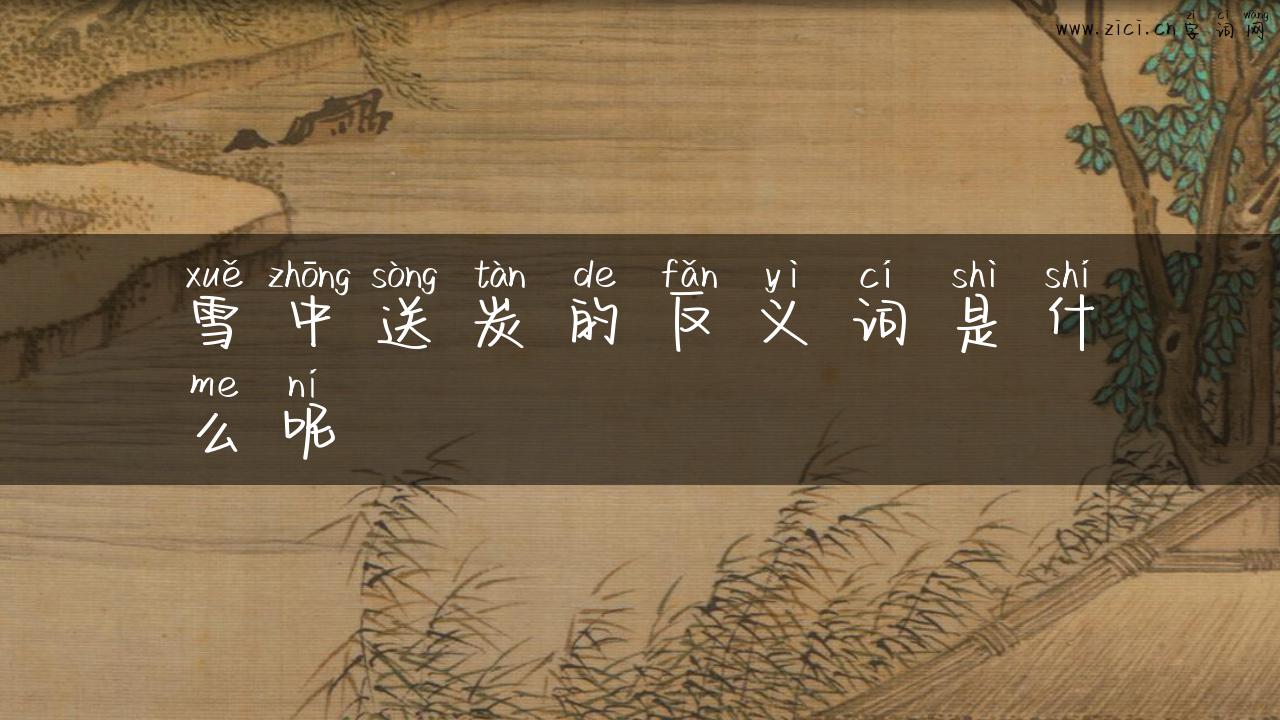 zì cí wǎng
www.zici.cn字词网
xuě zhōng sòng tàn de fǎn yì cí shì shí
雪中送炭的反义词是什
me ní
么呢